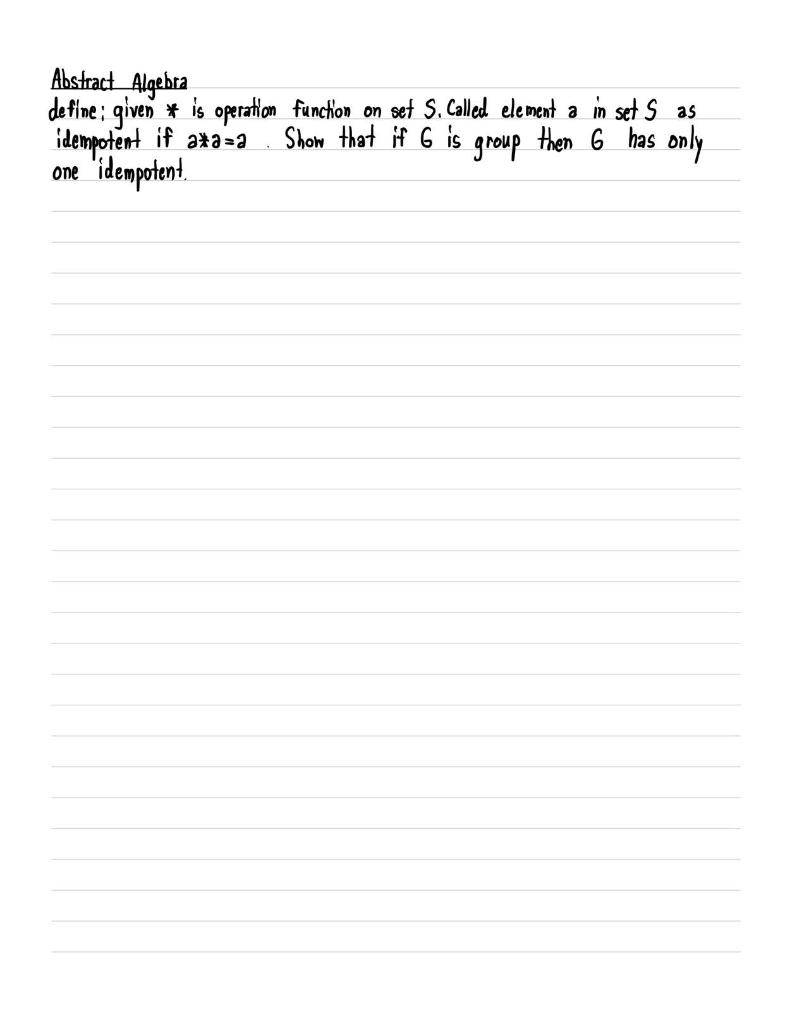 Abstract Algebra
define; given * is operation function on set S. Called element a in set S as
idempotent if a*a=a . Show that if G is group then G has only
one idempotent.